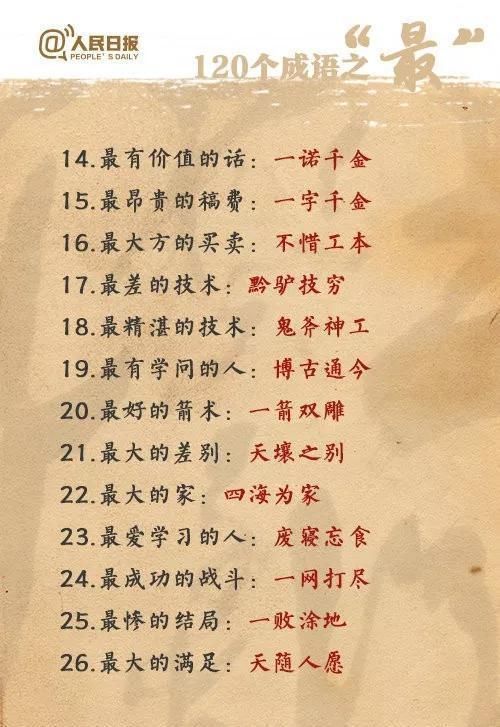 @人民日报
PEOPLE'S DAILY
120个成语之“最”
14.最有价值的话：一诺千金
15.最昂贵的稿费：一字千金
16.最大方的买卖：不惜工本
17.最差的技术：黔驴技穷
18.最精湛的技术：鬼斧神工
19.最有学问的人：博古通今
20.最好的箭术：一箭双雕
21.最大的差别：天壤之别
22.最大的家：四海为家
23.最爱学习的人：废寝忘食
24.最成功的战斗：一网打尽
25.最惨的结局：一败涂地
26.最大的满足：天随人愿